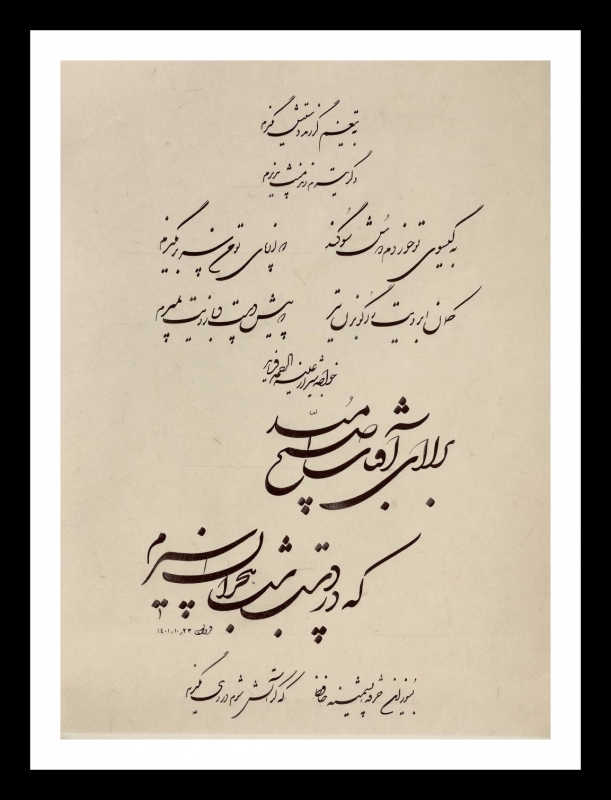 به تیغم گر زند دستش نگیرم
وگر تیرم زند منت پذیرم
به گیسوی تو خوردم دوش سوگند که از پای تو من سر بر نگیرم
کمان ابرویت را گو بزن تیر که پیش دست و بازویت بمیرم
خواجه شیراز علیه الرحمه فرماید
برآی ای آفتاب صبح امید
که در دست شب هجران اسیرم
۱۴۰۱،۱۰،۲۳
بسوز این خرقه پشمینه حافظ که گر آتش شوم در وی نگیرم